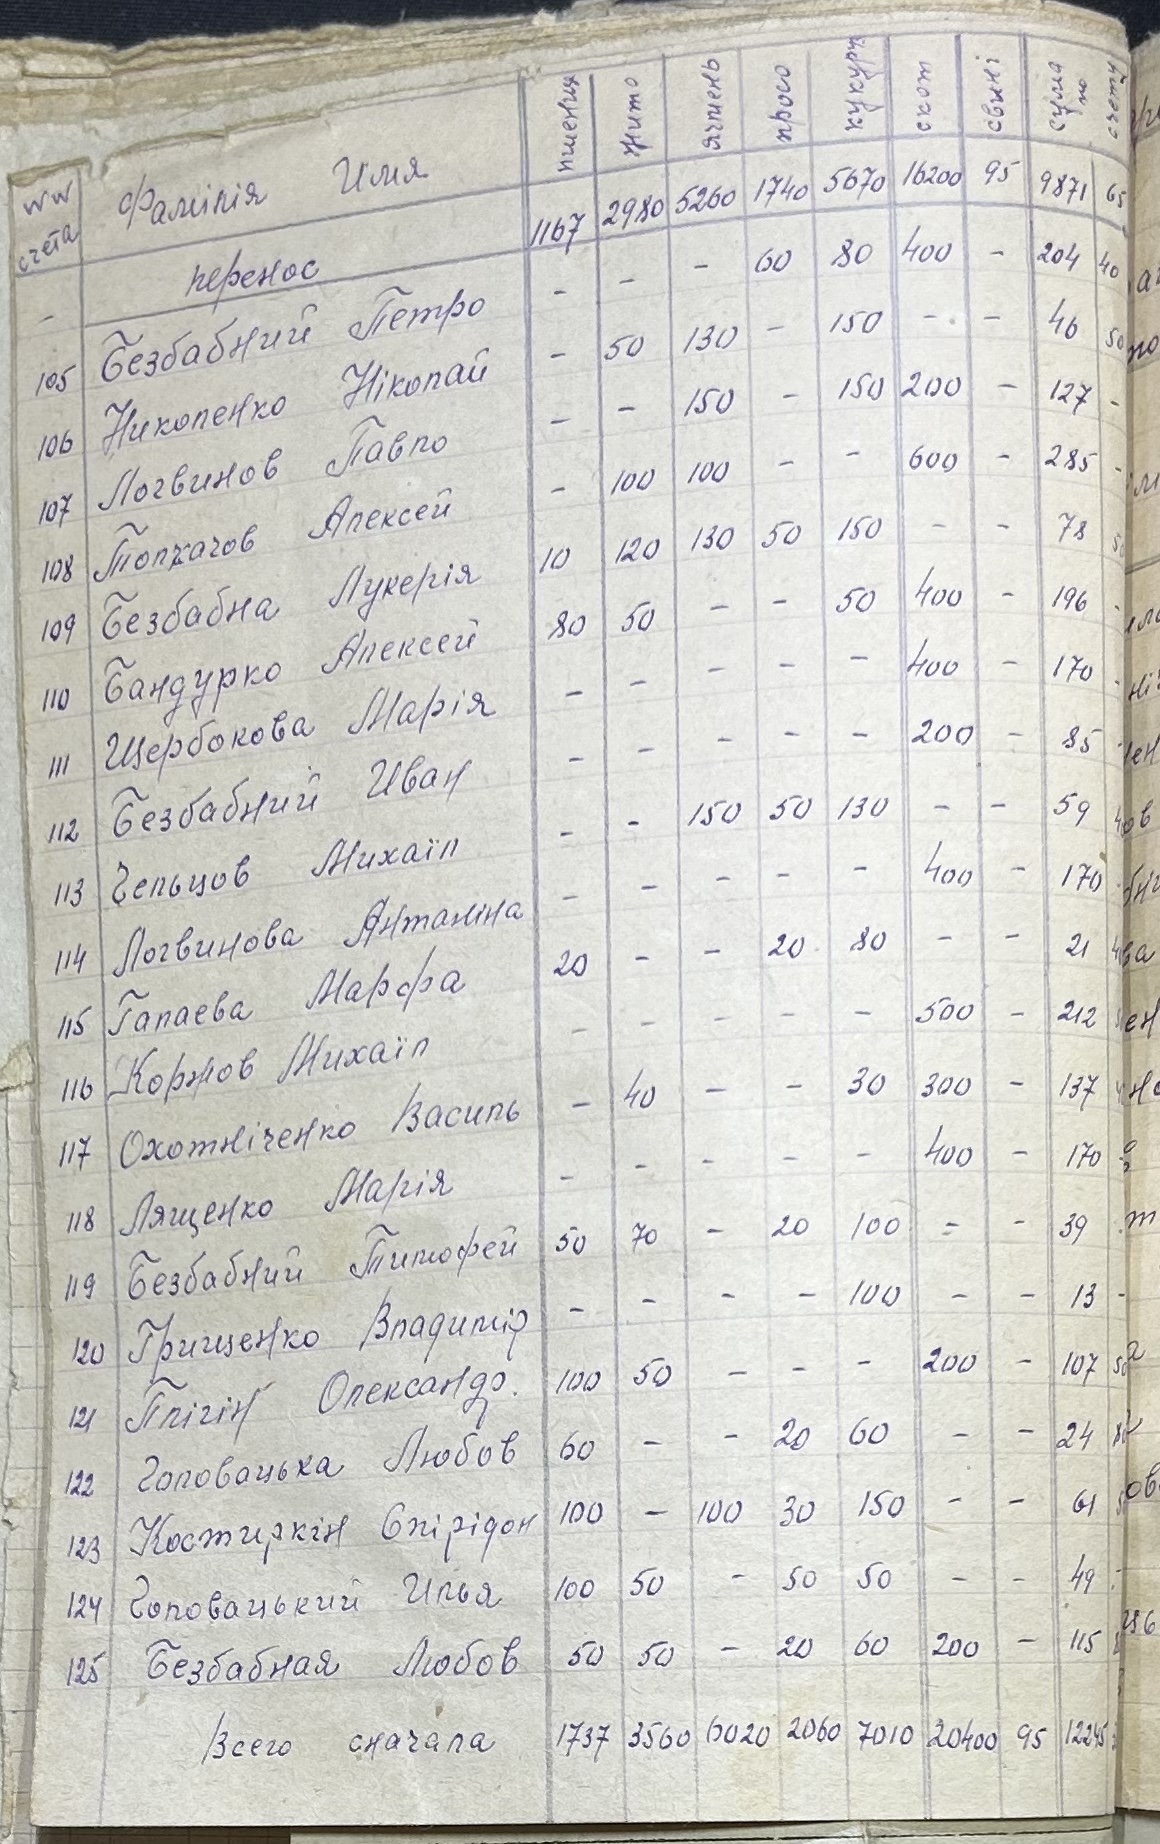 №№ счета Фамилія Имя пшениця жито ячмень просо кукуруз скот свині сума по счету
- перенос 1167 2980 5260 1740 5670 16200 95 9871 65
105 Безбабний Петро - - - 60 80 400 - 204 40
106 Николенко Ніколай - 50 130 - 150 - - 46 50
107 Логвинов Павло - - 150 - 150 200 - 127 -
108 Толкачов Алексей - 100 100 - - 600 - 285 -
109 Безбабна Лукерія 10 120 130 50 150 - - 78 50
110 Бандурко Алексей 80 50 - - 50 400 - 196 -
111 Щербокова Марія - - - - - 400 - 170 -
112 Безбабний Иван - - - - - 200 - 85 -
113 Чельцов Михаїл - - 150 50 130 - - 59
114 Логвинова Антаніна - - - - - 400 - 170
115 Галаева Марфа 20 - - 20 80 - - 21
116 Коржов Михаїл - - - - - 500 - 212
117 Охотніченко Василь - 40 - - 30 300 - 137
118 Лященко Марія - - - - - 400 - 170
119 Безбабний Тимофей 50 70 - 20 100 - - 39
120 Грищенко Владимір - - - - 100 - - 13 -
121 Плігін Олександр. 100 50 - - - 200 - 107 50
122 Головацька Любов 60 - - 20 60 - - 24
123 Костиркін Спірідон 100 - 100 30 150 - - 61
124 Головацький Илья 100 50 - 50 50 - - 49
125 Безбабная Любов 50 50 - 20 60 200 - 115
Всего сначала 1737 3560 6020 2060 7010 20400 95 12245